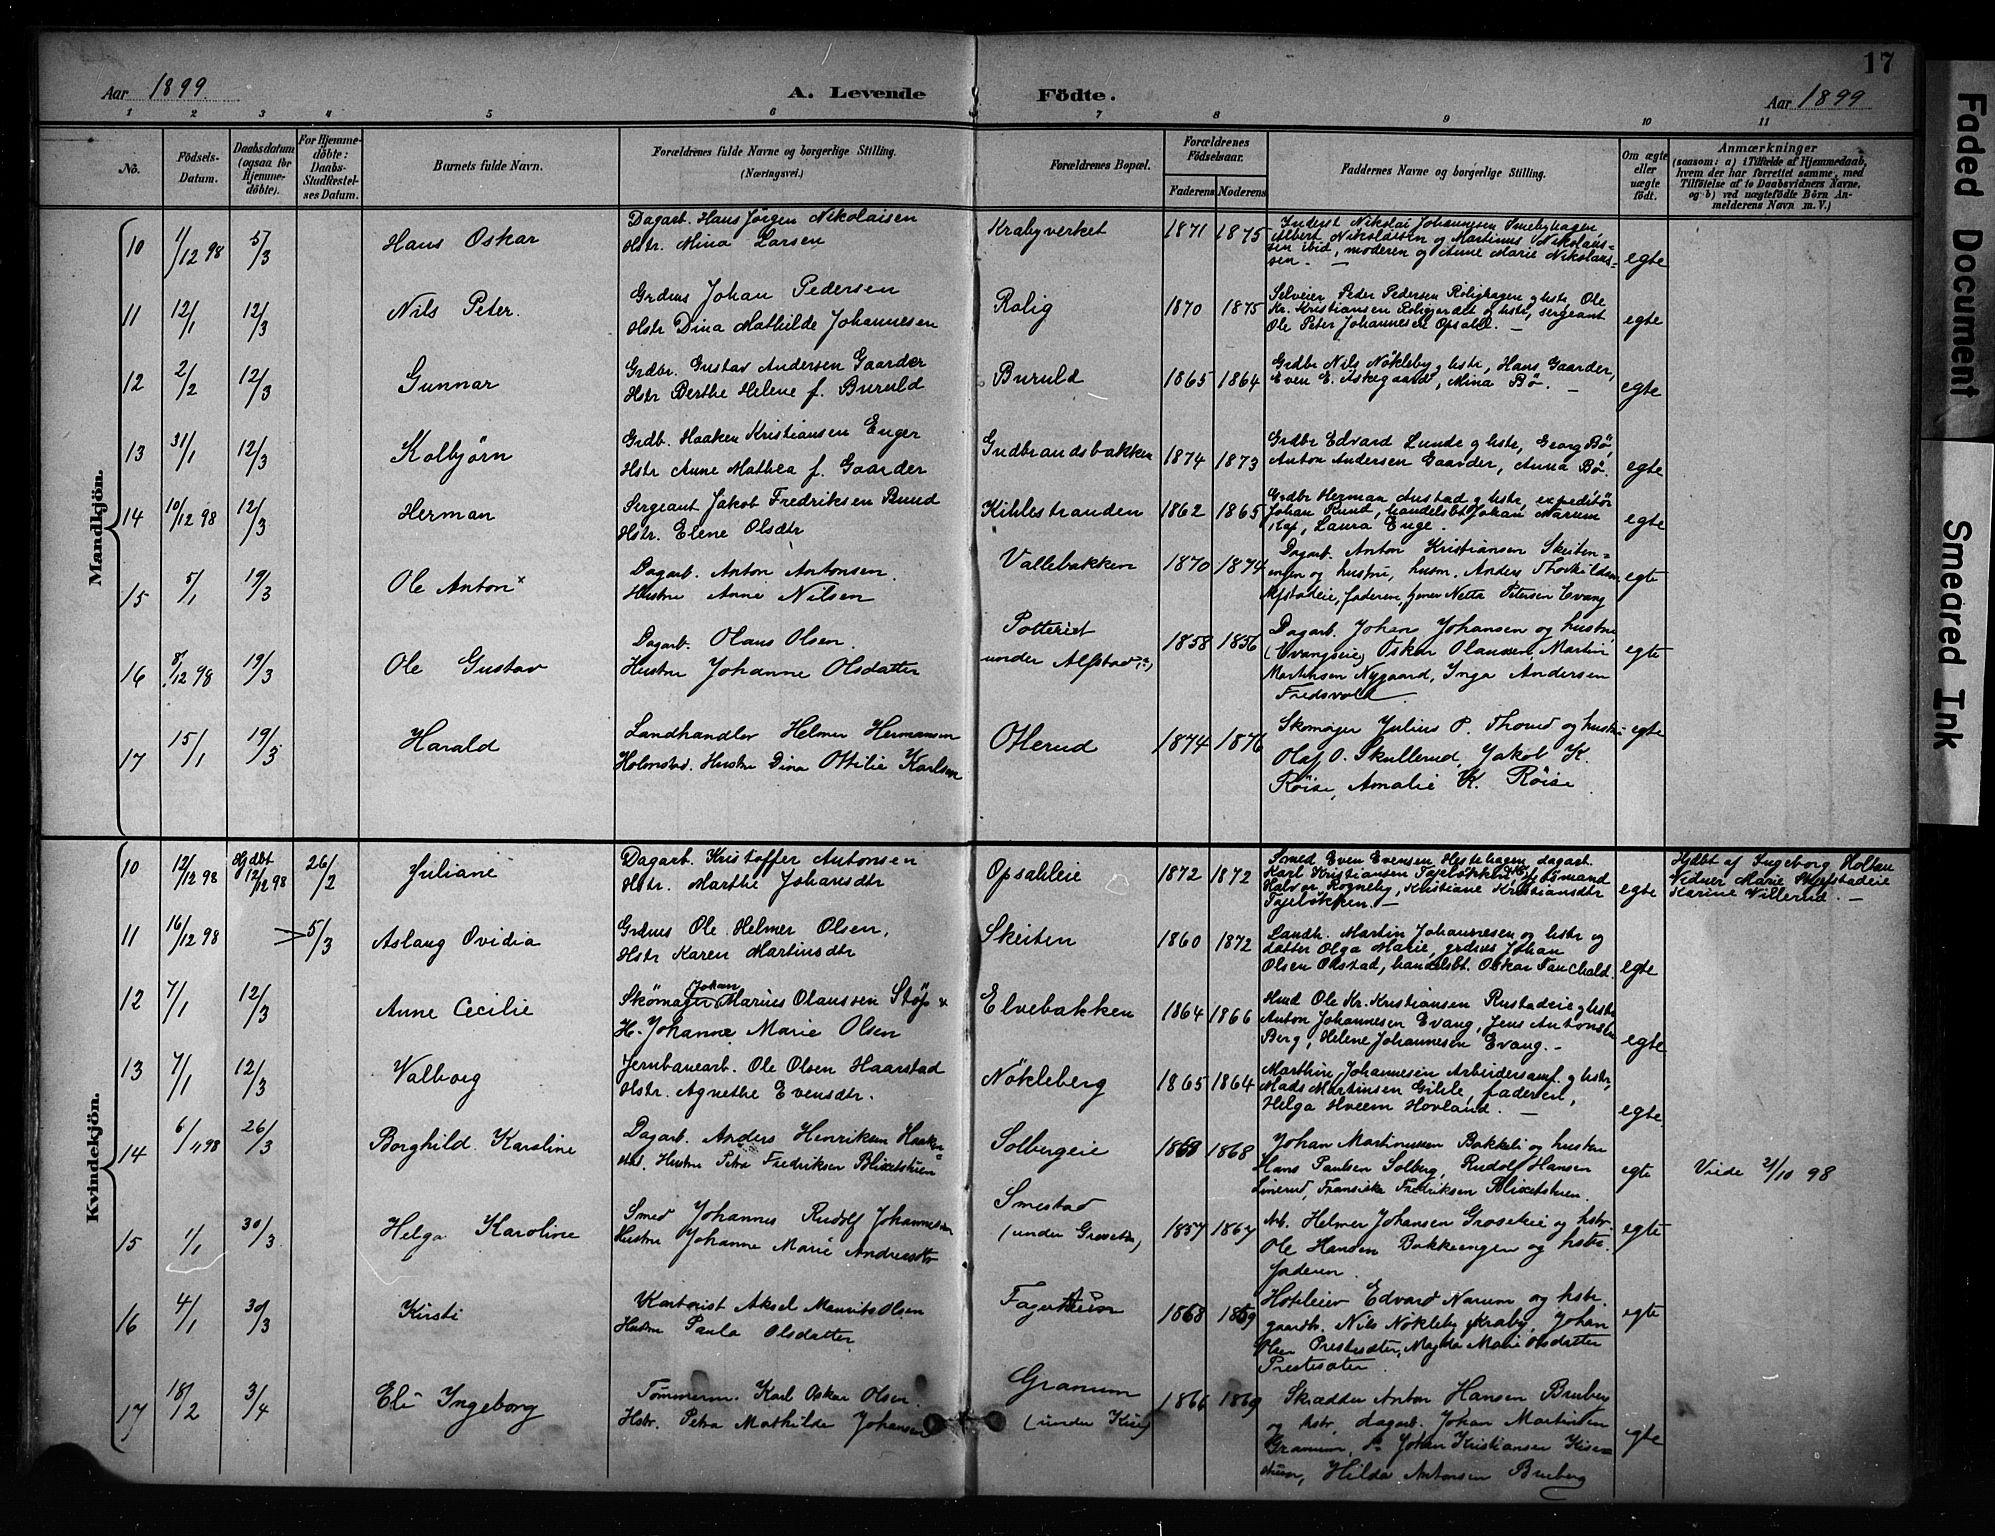 17
Aar 1899
A. Levende Födte.
Aar 1899
1 2 3 4 5 6 7 8 9 10 11
No.
Födsels-Datum.
Daabsdatum (ogsaa for Hjemme-döbte).
For Hjemme-döbte: Daabs-Stadfæstelses Datum.
Barnets fulde Navn.
Forældrenes fulde Navne og borgerlige Stilling. (Næringsvei.)
Forældrenes Bopæl.
Forældrenes Födselsaar.
Faderens Moderens
Faddernes Navne og borgerlige Stilling.
Om ægte eller uægte födt.
Anmærkninger (saasom: a) i Tilfælde af Hjemmedaab, hvem der har forrettet samme, med Tilföielse af to Daabsvidners Navne, og b) ved uægtefödte Börn Anmelderens Navn m. V.)
Mandkjön.
10 1/12 98 5/3 Hans Oskar
Dagarb. Hans Jörgen Nikolaisen
Hstr. Mina Larsen
Krabyverket 1871 1875
Inderst Nikolai Johannesen
Albert Nikolaisen og Martinus Nikolais=
sen ibid, moderen og Anne Marie Nikolais=
sen. —
egte
11 12/1 12/3 Nils Peter.
Grdms Johan Pedersen
Hstr Dina Mathilde Johannesen
Rolig 1870 1875
Selveier Peter Pedersen Rolighagen g hstr, Ole
Kr. Kristiansen Roligjordet g hstr, sergeant
Ole Peter Johannesen Opsahl. —
egte
12 2/2 12/3 Gunnar
Grdbr. Gustav Andersen Gaarder
Hstr Berthe Helene f. Buruld
Buruld 1865 1864
Grdbr Nils Nökleby g hstr, Hans Gaarder,
Even E. Askegaard, Mina Bö. —
egte
13 31/1 12/3 Kolbjörn
Grdb. Haaken Kristiansen Enger
Hstr Anne Mathea f. Gaarder
Gudbrandsbakken 1874 1873
Grdbr Edvard Lunde g hstr, Georg Bö,
Anton Andersen Gaarder, Anna Bö.
egte
14 10/12 98 12/3 Herman
Sergeant Jakob Fredriksen Bund
Hstr. Elene Olsdtr
Kihlestranden 1862 1865
Grdbr Herman Austad g hstr, expeditör
Johan Rund, handelsbt Johan Narum
Kap, Laura Enge.
egte
15 5/1 19/3 Ole Anton x
Dagarb. Anton Antonsen.
Hustru Anne Nilsen
Vallebakken 1870 1874
Dagarb. Anton Kristiansen Skeiten=
engen og hustru, husm. Anders Thorkildsen
Alfstadeie, faderen, Netta Petersen Evang
egte
16 8/12 98 19/3 Ole Gustav
Dagarb. Olaus Olsen.
Hustru Johanne Olsdatter
Potteriet
under Alfstad 1858 1856
Dagarb. Johan Johansen og hustru
(Evangseie) Oskar Olaussen, Martin
Martinsen Nygaard, Inga Andersen
Fredsvold
egte
17 15/1 19/3 Harald
Landhandler Helmer Hermansen
Holmstad. Hustru Dina Ottilie Karlsen
Otterud 1874 1876
Skomager Julius P. Thorud og hustru
Olaf O. Skullerud, Jakob K.
Röise, Amalie K. Röise
egte
Kvindekjön.
10 12/12 98 Hjdbt 12/12 98 26/2 Juliane
Dagarb. Kristoffer Antonsen
Hstr. Marthe Johansdtr
Opsahleie 1872 1872
Smed Even Evensen Hestehagen, dagarb.
Karl Kristiansen Fajelökken,
Halvor Rogneby, Kristiane Kristiansdtr
Fajelökken. —
egte
Hjdbt af Ingeborg Holtan
Vidner Marie
Karine Villerud. —
11 16/12 98 5/3 Aslaug Ovidia
Grdms Ole Helmer Olsen,
Hstr Karen Martinsdtr
Skeiten 1860 1872
Landh. Martin Johannesen og hstr og
datter Olga Marie, grdms Johan
Olsen Olstad, handelsbt. Oskar Fauchald.
egte
12 7/1 12/3 Anne Cecilie
Skomager Johan Marius Olaussen Stöp
H. Johanne Marie Olsen
Elvebakken 1864 1866
Hmd Ole Kr. Kristiansen Rustadeie g hstr
Anton Johannesen Evang, Jens Antonsen
Berg, Helene Johannesen Evang. —
egte
13 7/1 12/3 Valborg
Jernbanearb. Ole Olsen Haarstad
Hstr. Agnethe Evensdtr.
Nökleberg 1865 1864
Marthin Johannesen Arbeidersamf. g hstr,
Mads Martinsen Gihle, faderen,
Helga Hveem Hovland. —
egte
14 6/11 98 26/3 Borghild Karoline
Dagarb. Anders Henriksen
Hustru Petra Fredriksen Blixetstuen
Solbergeie 1868
Johan Martinussen Bakkeli og hustru
Hans Paulsen Solberg, Rudolf Hansen
Linerud, Fransiska Fredriksen Blixetstuen.
egte
Viede 21/10 98
15 1/1 30/3 Helga Karoline
Smed Johannes Rudolf Johannesen
Hustru Johanne Marie Andreasdtr
Smestad
1857 1867
Arb. Helmer Johansen Groseteie og hstr.
Ole Hansen Bakkeengen og hstr.
faderen
egte
16 4/1 30/3 Kirsti
Aksel Mauritz Olsen
Hustru Paula Olsdatter
1868
Hoteleier Edvard Narum og hstr.
gaardbr. Nils Nökleby Kraby, Johan
Olsen Prestesæter, Magda Marie Olsdatter
Prestesæter
egte
17 18/2 3/4 Eli Ingeborg
Tömmerm. Karl Oskar Olsen.
Hstr. Petra Mathilde Johansen
Granum
(under Kise) 1866 1869
Skrædder Anton Hansen Bruberg
og hstr, dagarb. Johan Martinsen
Granum, Johan Kristiansen Kise=
Hilda Antonsen Bruberg
egte
Faded Document
Smeared Ink